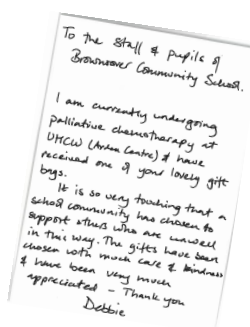 To the staff & pupils of
Brownsover Community School.
I am currently undergoing
palliative chemotherapy at
UHCW (Arden Centre) & have
received one of your lovely gift
bags.
It is so very touching that a
school community has chosen to
support others who are unwell
in this way. The gifts have been
chosen with much care & kindness
& have been very much
appreciated - Thank you
Debbie